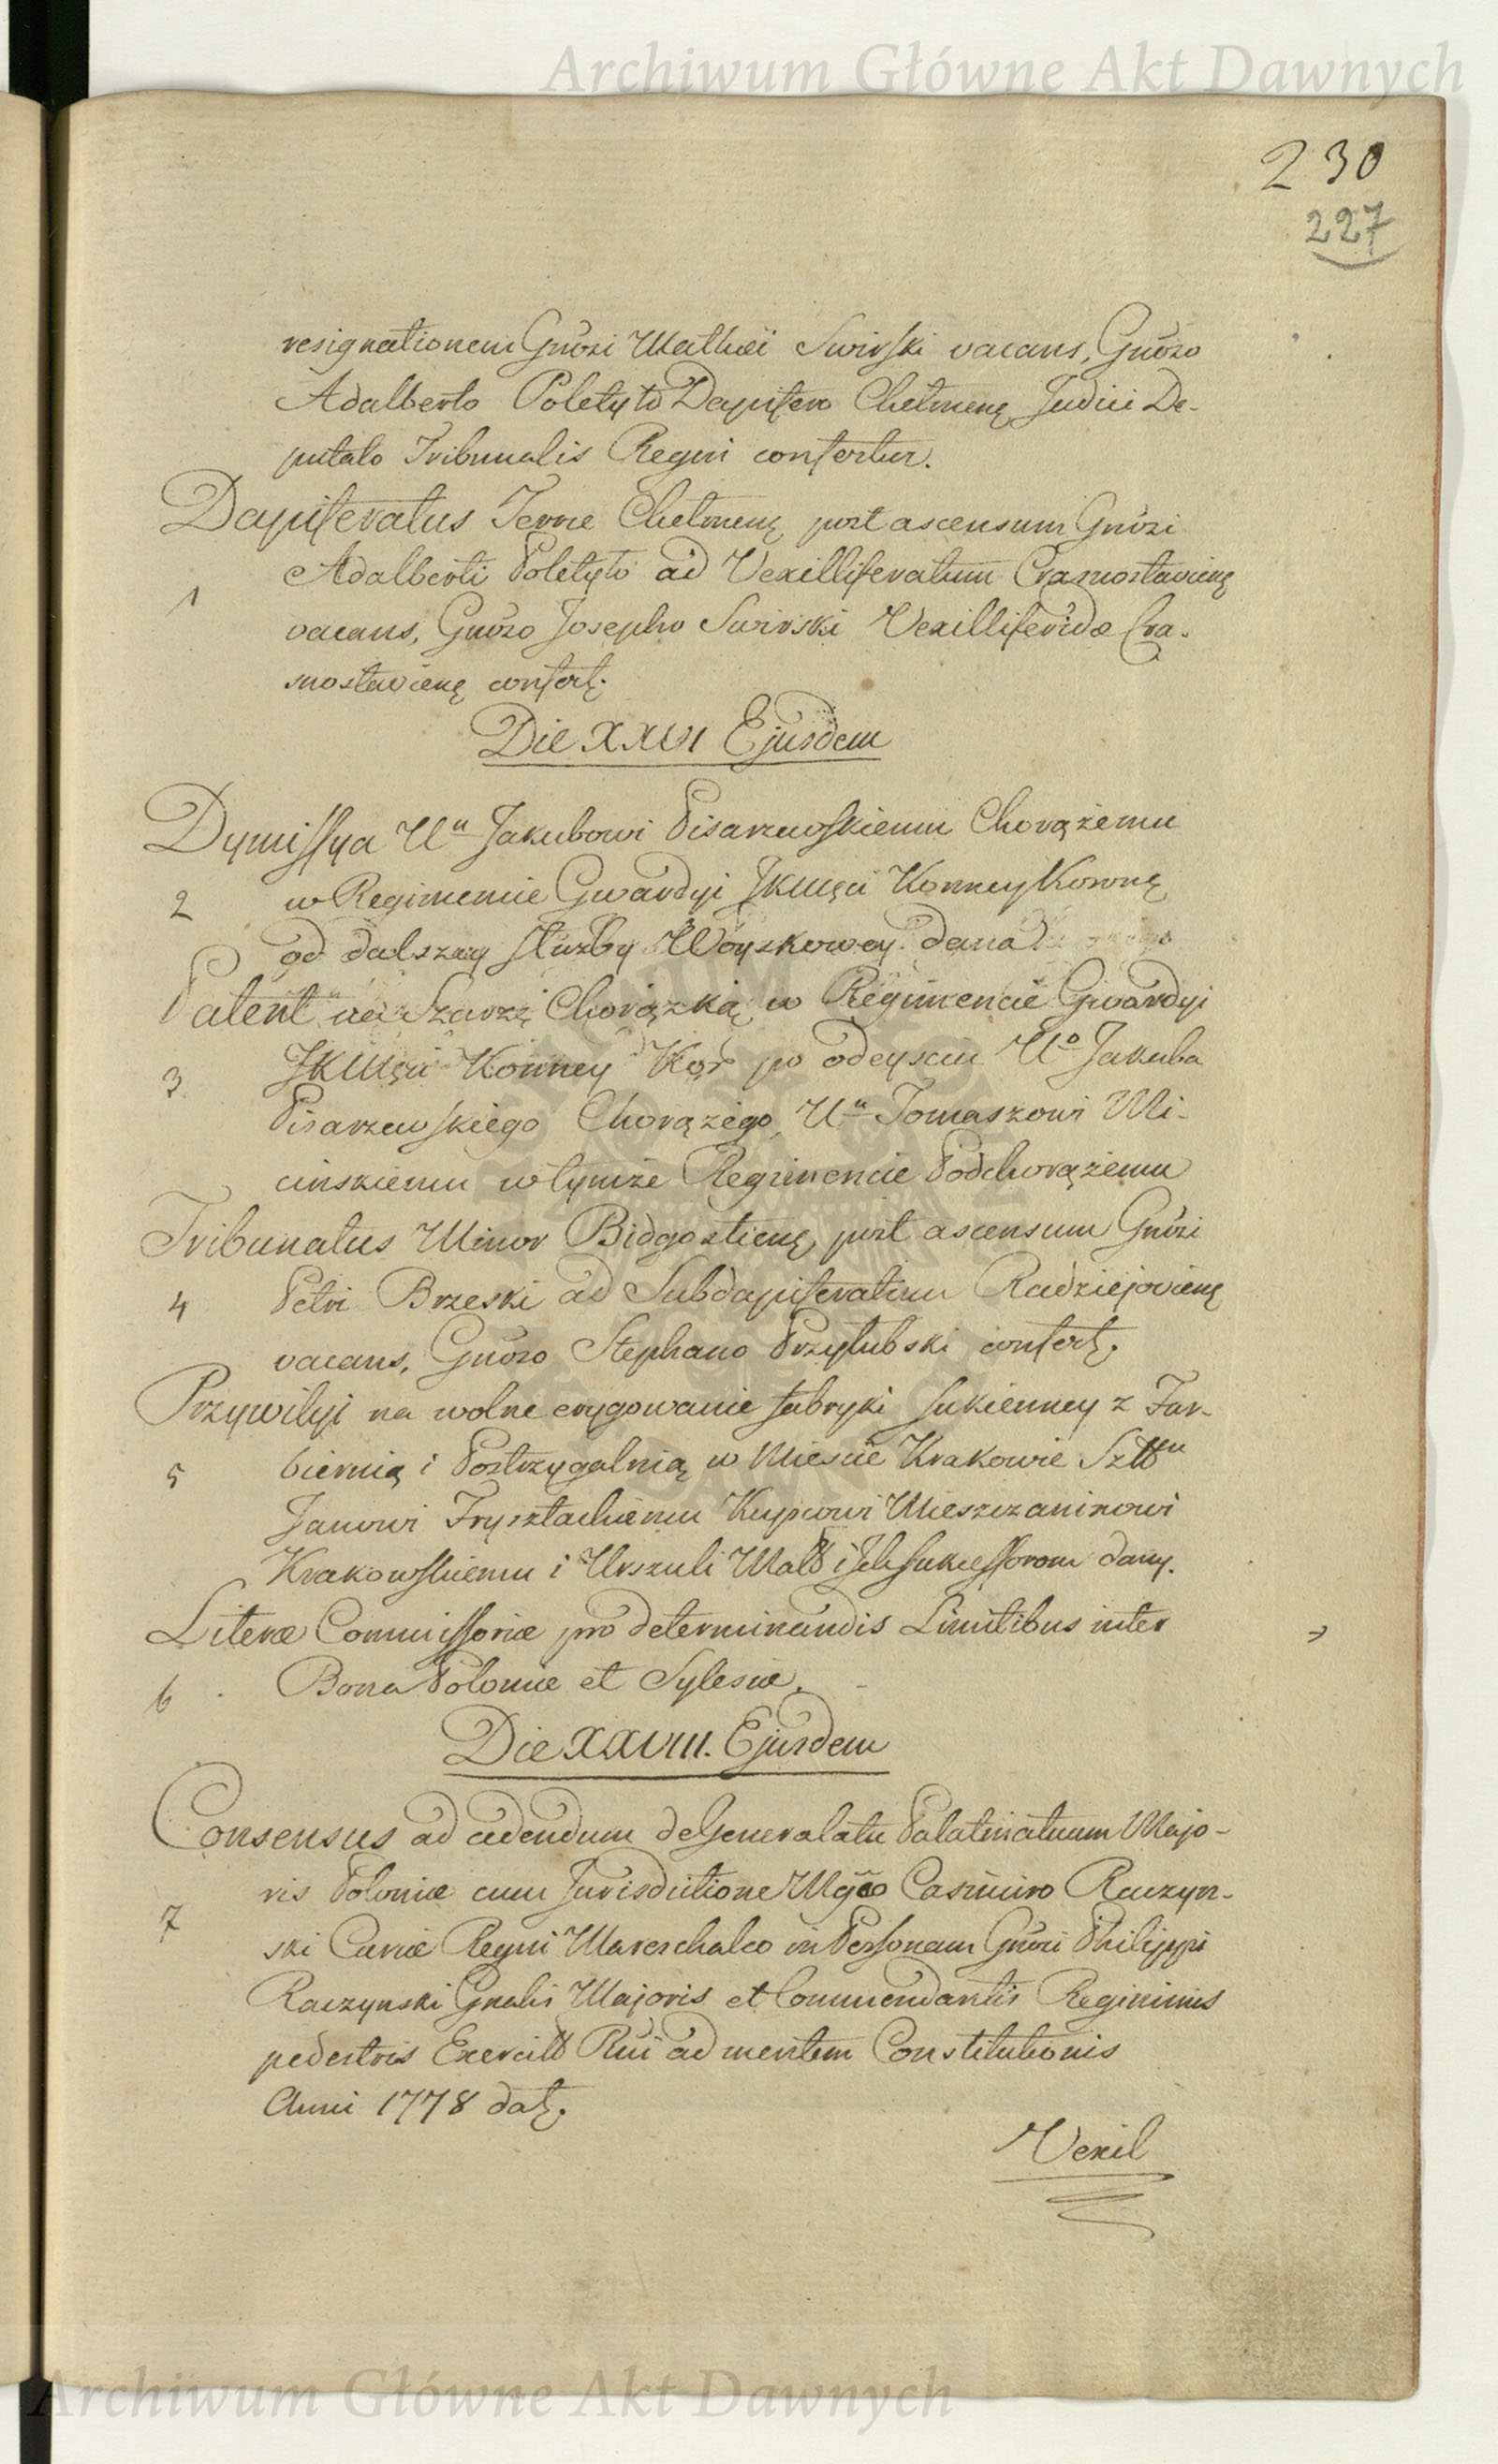 Archiwum Główne Akt Dawnych
230
227
resignationem Gnôzi Mathæi Swirski vacans, Gnôzo
Adalberto Poletyło Dapifero Chelmenę Judici De-
putato Tribunalis Regni confertur.
Dapiferatus Terræ Chelmenę post ascensum Gnôzi
1 Adalberti Poletyło ad Vexilliferatum Crasnostavienę
vacans, Gnôzo Josepho Swirski Vexilliferidæ Cra-
snostavienę confertę.
Die XXVII Ejusdem
Dymissya Uu Jakubowi Pisarzewskiemu Chorążemu
2 w Regimencie Gwardyi JKMęci Konney Koronę
od dalszey służby Woyskowey dana
Patent na Szarżę Chorązką w Regimencie Gwardyi
3 JKMęci Konney Kor po odeysciu Uo Jakuba
Pisarzewskiego Chorążego, Uu Tomaszowi Mi-
cinskiemu w tymże Regimencie Podchorążemu
Tribunatus Minor Bidgostienę post ascensum Gnôzi
4 Petri Brzeski ad Subdapiferatum Radziejovienę
vacans, Gnôzo Stephano Przyłubski confertę.
Przywilyi na wolne erygowanie fabryki sukienney z Far-
5 biernią i Postrzygalnią w Miescie Krakowie Sztu
Janowi Frysztackiemu Kupcowi Mieszczaninowi
Krakowskiemu i Urszuli Małż i Ich sukcessorom dany.
Literæ Commissoriæ pro determinandis Limitibus inter
6 Bona Poloniæ et Sylesiæ.
Die XXVIII. Ejusdem
Consensus ad cedendum de Generalatu Palatinatuum Majo-
ris Poloniæ cum Jurisdictione Mgco Casimiro Raczyn-
7 ski Curiæ Regni Mareschalco in Personam Gnôzi Philippi
Raczynski Gnalis Majoris et Commendantis Regiminis
pedestris Exercitu Rni ad mentem Constitutionis
Anni 1778 datę.
Vexil
Archiwum Główne Akt Dawnych